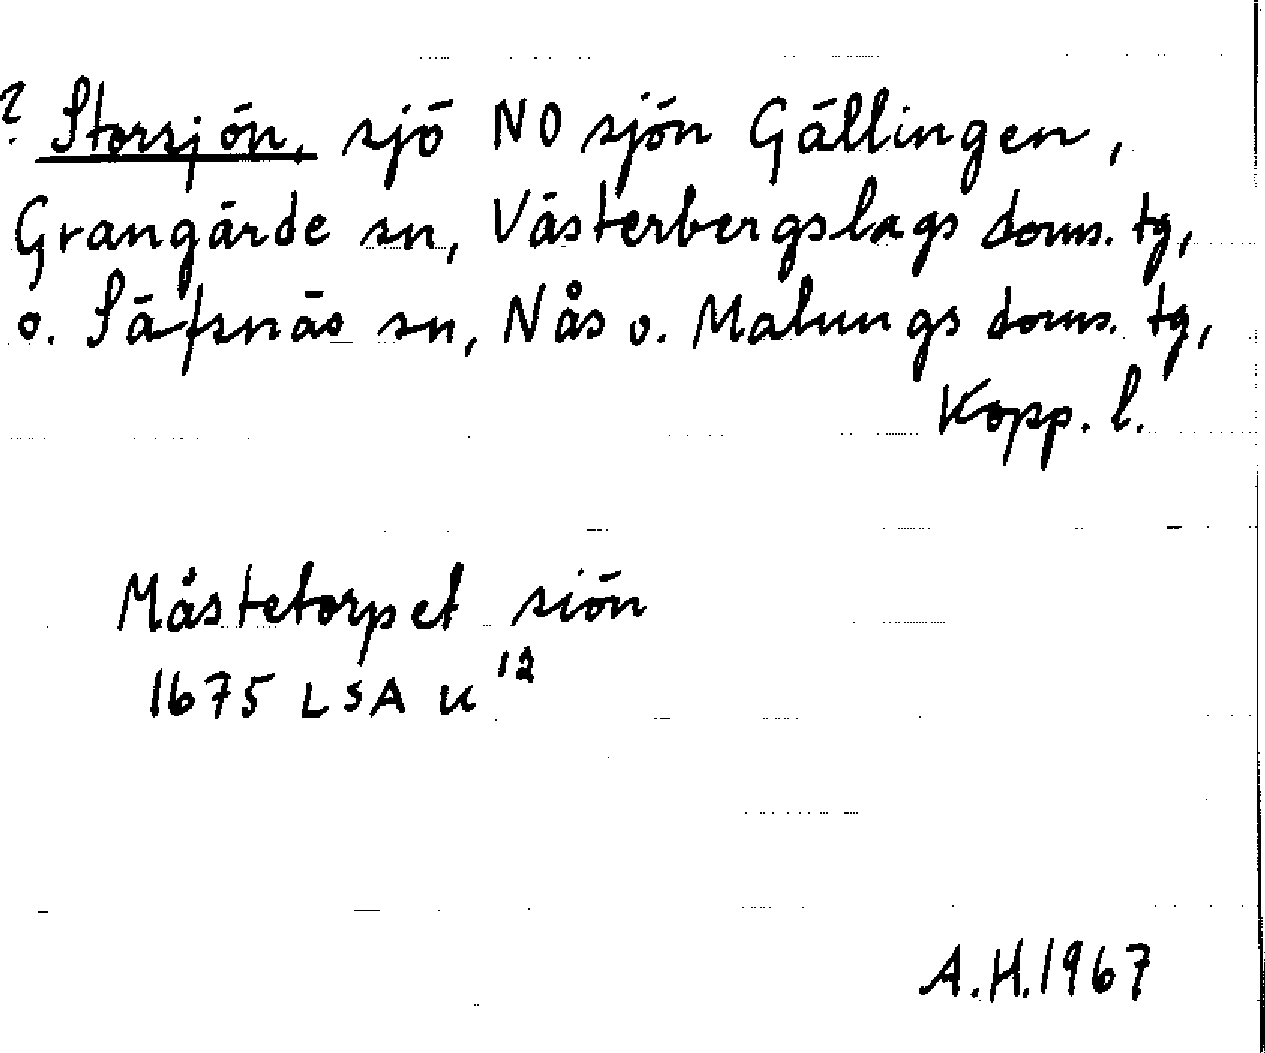 ? Storsjön, sjö NO sjön Gällingen,
Grangärde sn, Västerbergslags doms. tg,
o. Säfsnäs sn, Nås o. Malungs doms. tg,
Kopp. l.
Måstetorpet siön
1675 LSA U 12
A.H. 1967